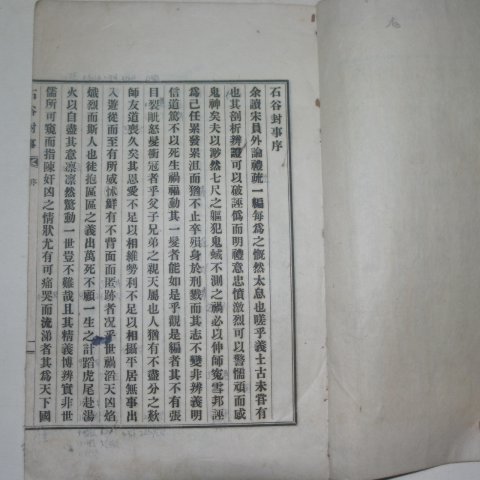 石谷封事序
余讀宋員外論禮疏一編每爲之慨然太息也嗟乎義士古未甞有
也其剖析辨證可以破誣僞而明禮意忠憤激烈可以警懦頑而感
鬼神矣夫以渺然七尺之軀犯鬼蜮不測之禍必以伸師寃雪邦誣
爲己任累發累沮而猶不止卒殞身於刑戮而其志不變非辨義明
信道篤不以死生禍福動其一髮者能如是乎觀是編者其不有張
目裂眦怒髮衝冠者乎父子兄弟之親天屬也人猶有不盡分之歎
師友道喪久矣其恩愛不足以相維勢利不足以相攝平居無事出
入遊從而至有所慼怵鮮有不背面而匿跡者况乎世禍滔天凶焰
熾烈而斯人也徒抱區區之義出萬死不顧一生之計蹈虎尾赴湯
火以自盡其意凛凛然驚動一世豈不難哉且其精義博辨實非世
儒所可窺而指陳奸凶之情狀尤有可痛哭而流涕者其爲天下國
石谷封事 序 一